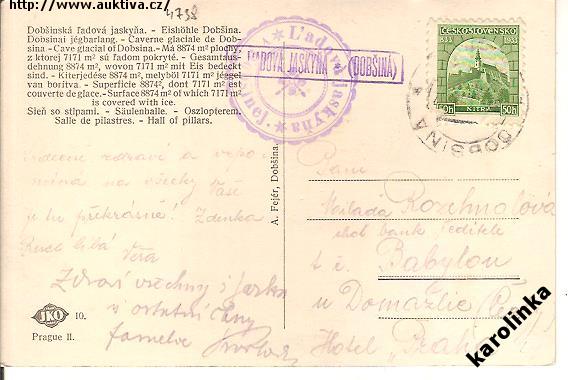 http://www.auktiva.cz/
4738
Dobšinská ľadová jaskyňa. - Eishöhle Dobšina.
Dobsinai jégbarlang. - Caverne glaciale de Dob-
sina - Cave glacial of Dobsina. - Má 8874 m² plochy,
z ktorej 7171 m² sú ľadom pokryté. - Gesamtaus-
dehnung 8874 m², wovon 7171 m² mit Eis bedeckt
sind. - Kiterjedése 8874 m², melyböl 7171 m² jéggel
van boritva. - Superficie 8874², dont 7171 m² est
couverte de glace. - Surface 8874 m² of which 7171 m²
is covered with ice.
Sieň so stlpami. - Säulenhalle. - Oszlopterem.
Salle de pilastres. - Hall of pillars.
Ľadová jaskyňa
ĽADOVÁ JASKYŇA (DOBŠINÁ)
ČESKOSLOVENSKO
833 1933
NITRA
50h 50h
DOBŠINÁ
Srdečné zdraví a vzpo
mínka na všecky Vaše
je tu překrásně! Zdenka
líbá Věra
Zdraví všechny i
v ostatní
A. Fejér, Dobšina.
Paní
Milada
choť bank. ředitele
t. č. Babylon
u Domažlic
Hotel
JKO 10.
Prague II.
karolinka